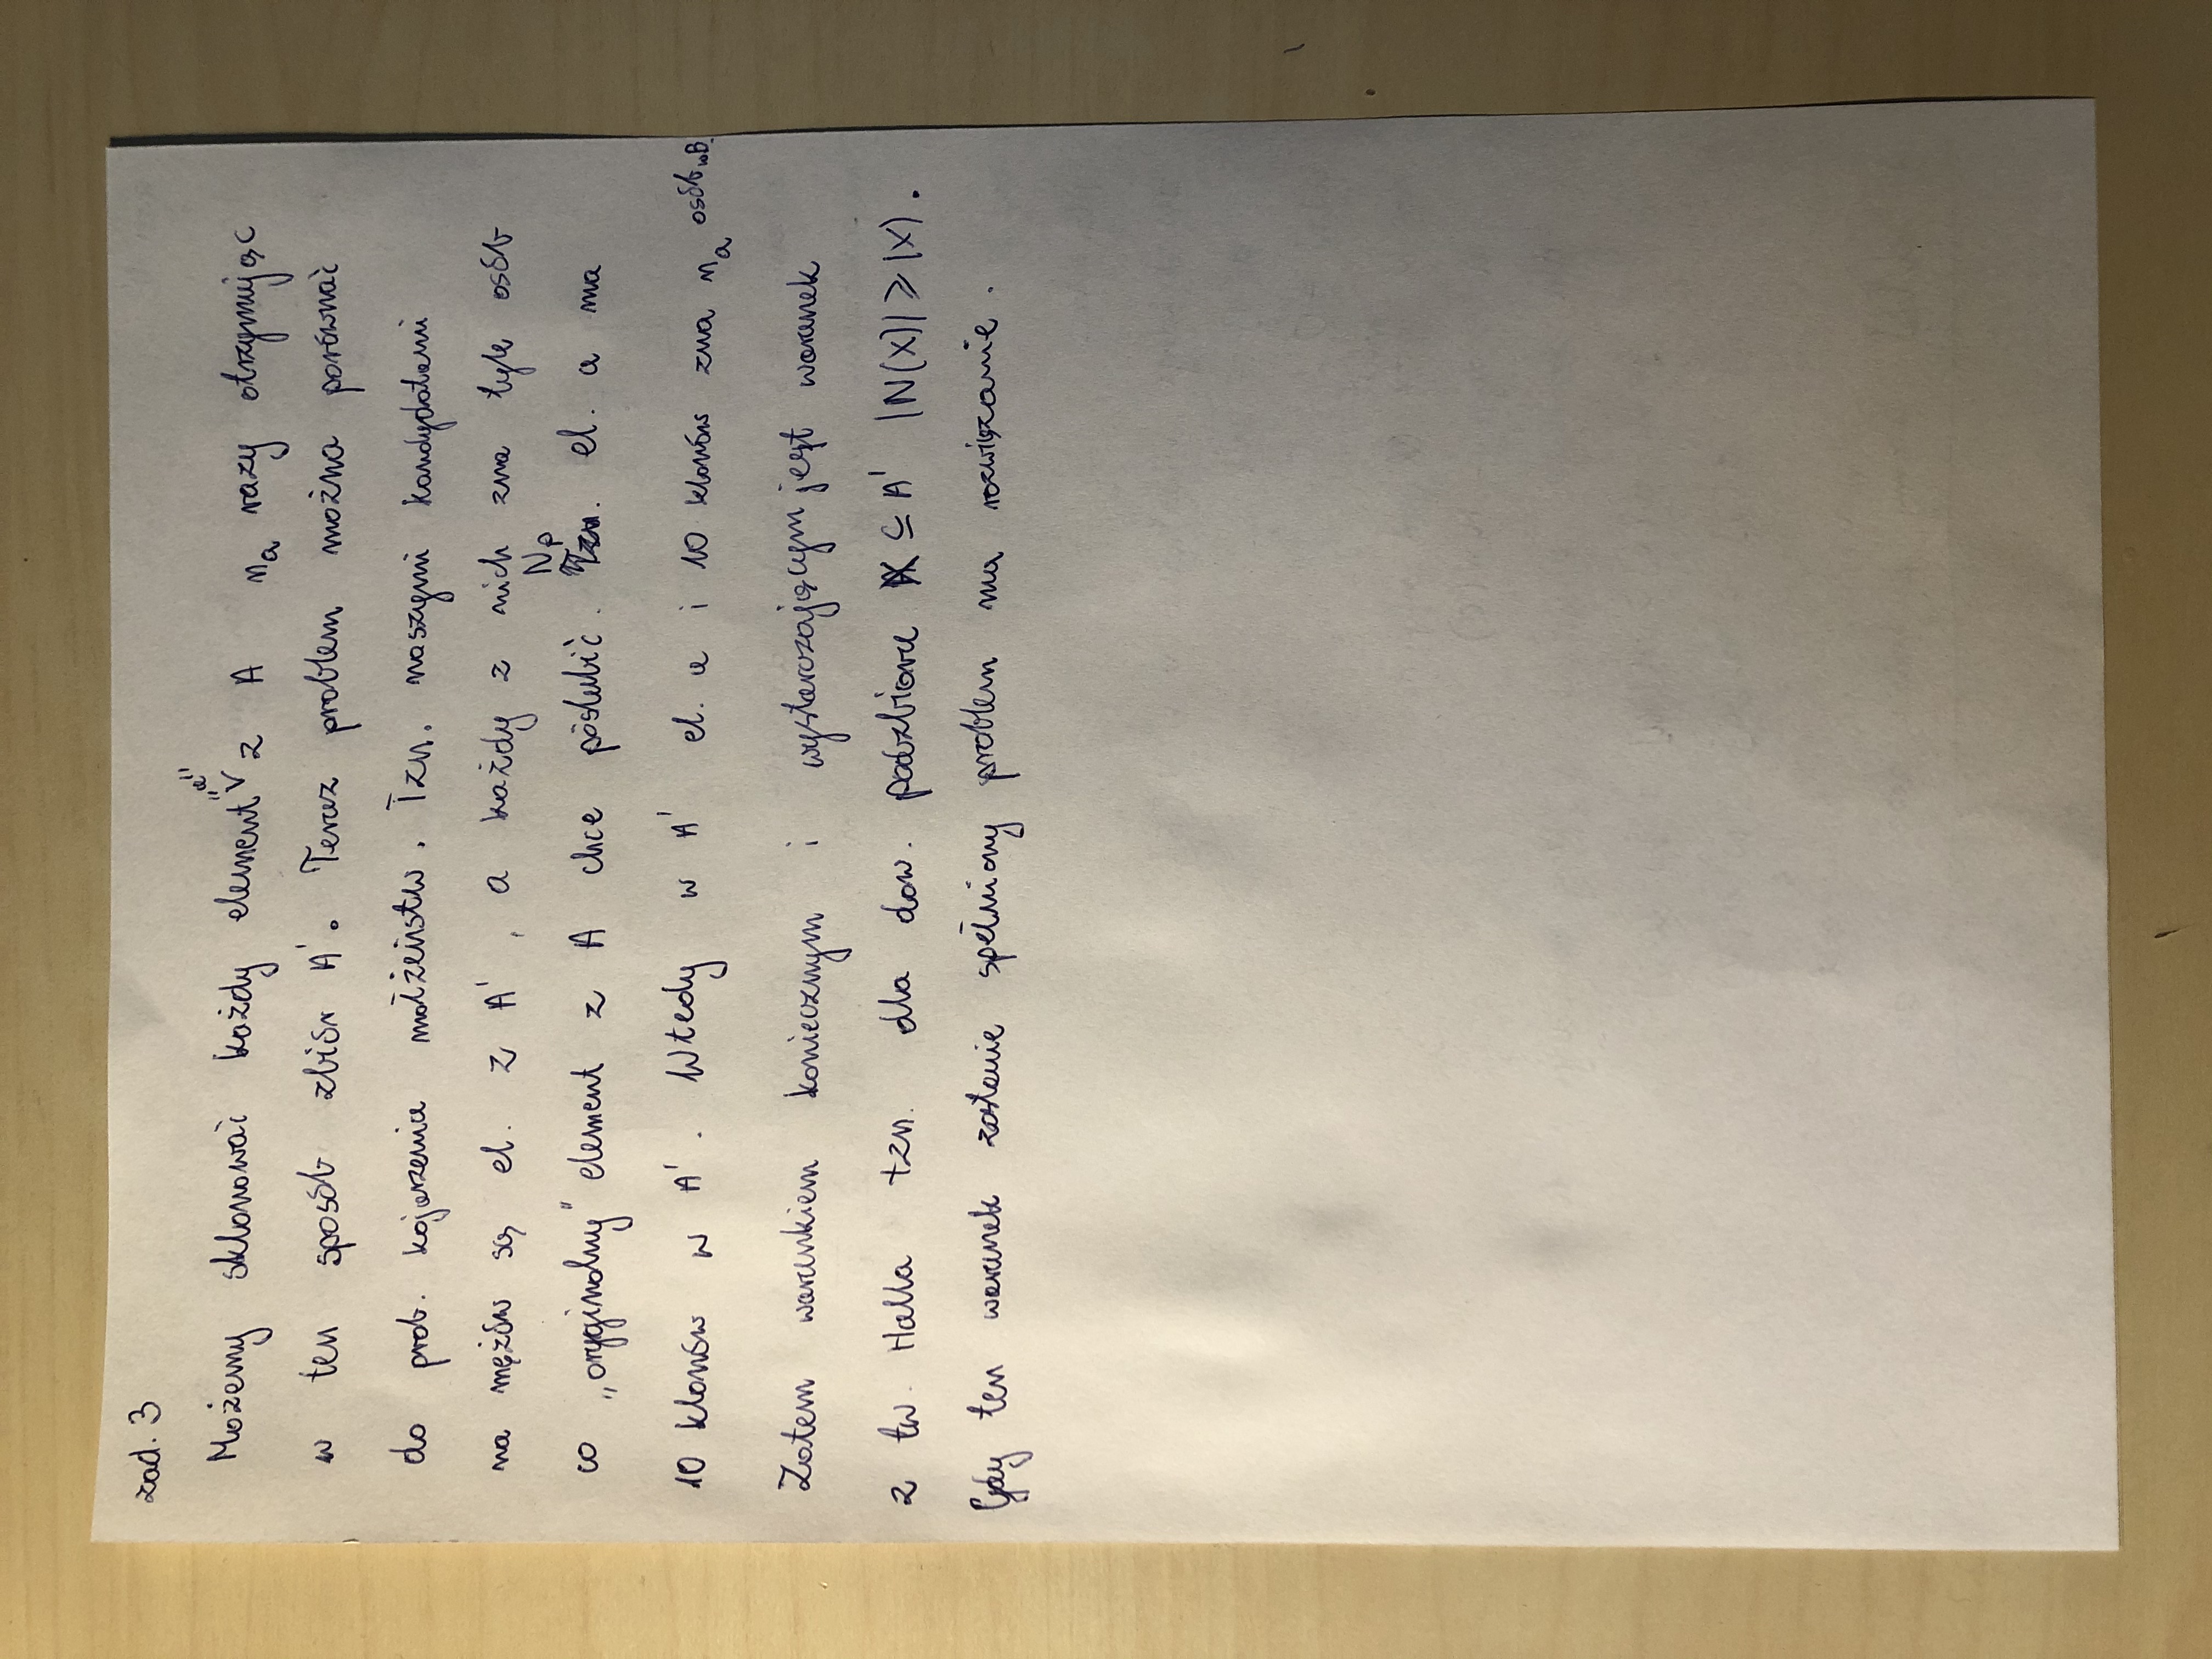 zad. 3
Możemy sklonować każdy element "a" z A n_a razy otrzymując
w ten sposób zbiór A'. Teraz problem można porównać
do prob. kojarzenia małżeństw. Tzn. naszymi kandydatami
na mężów są el. z A', a każdy z nich zna tyle osób
co „oryginalny" element z A chce poślubić. Np. el. a ma
10 klonów w A'. Wtedy w A' el. a i 10 klonów zna n_a osób w B.
Zatem warunkiem koniecznym i wystarczającym jest warunek
z tw. Halla tzn. dla dow. podzbioru X ⊆ A' |N(X)| ⩾ |X|.
Gdy ten warunek zostanie spełniony problem ma rozwiązanie.